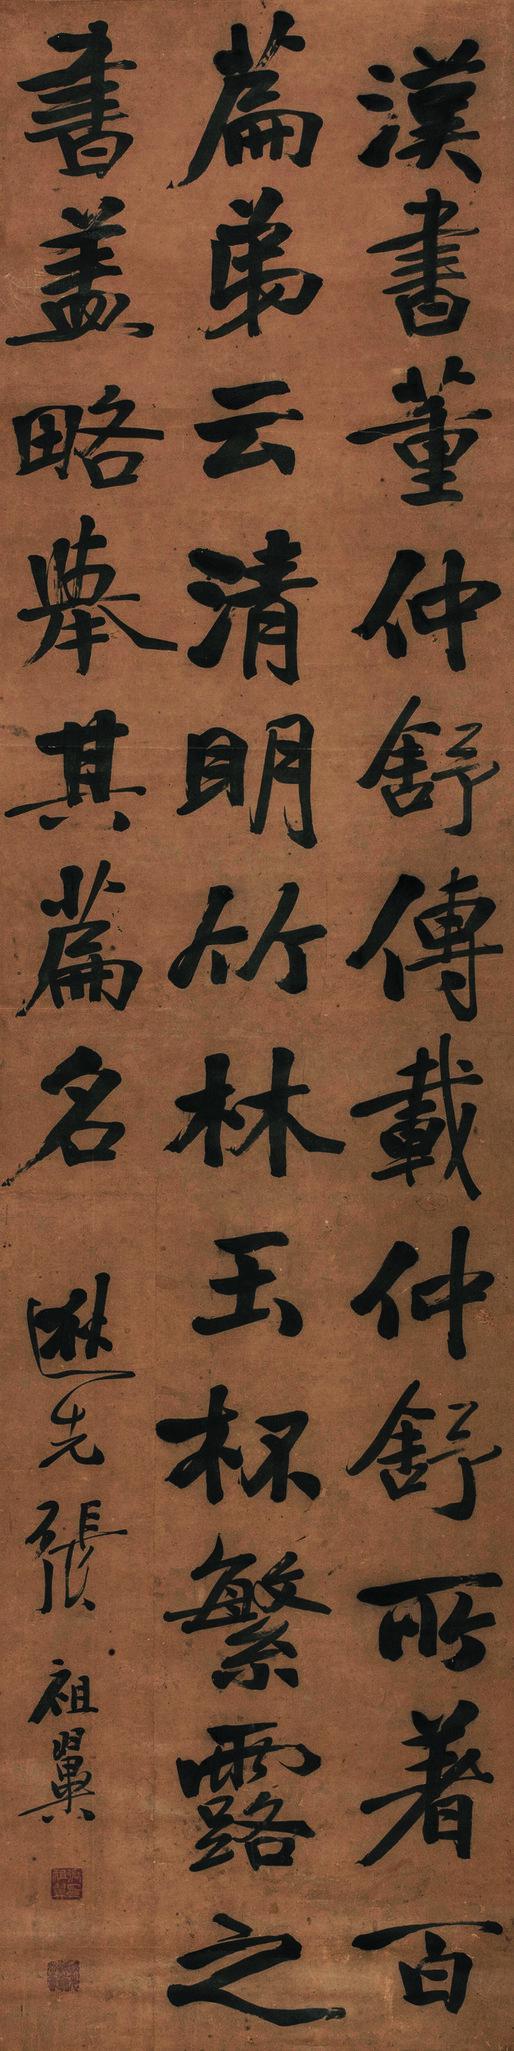 漢書董仲舒傳載仲舒所著百
篇弟云清明竹林玉杯繁露之
書蓋略舉其篇名
遜先張祖翼